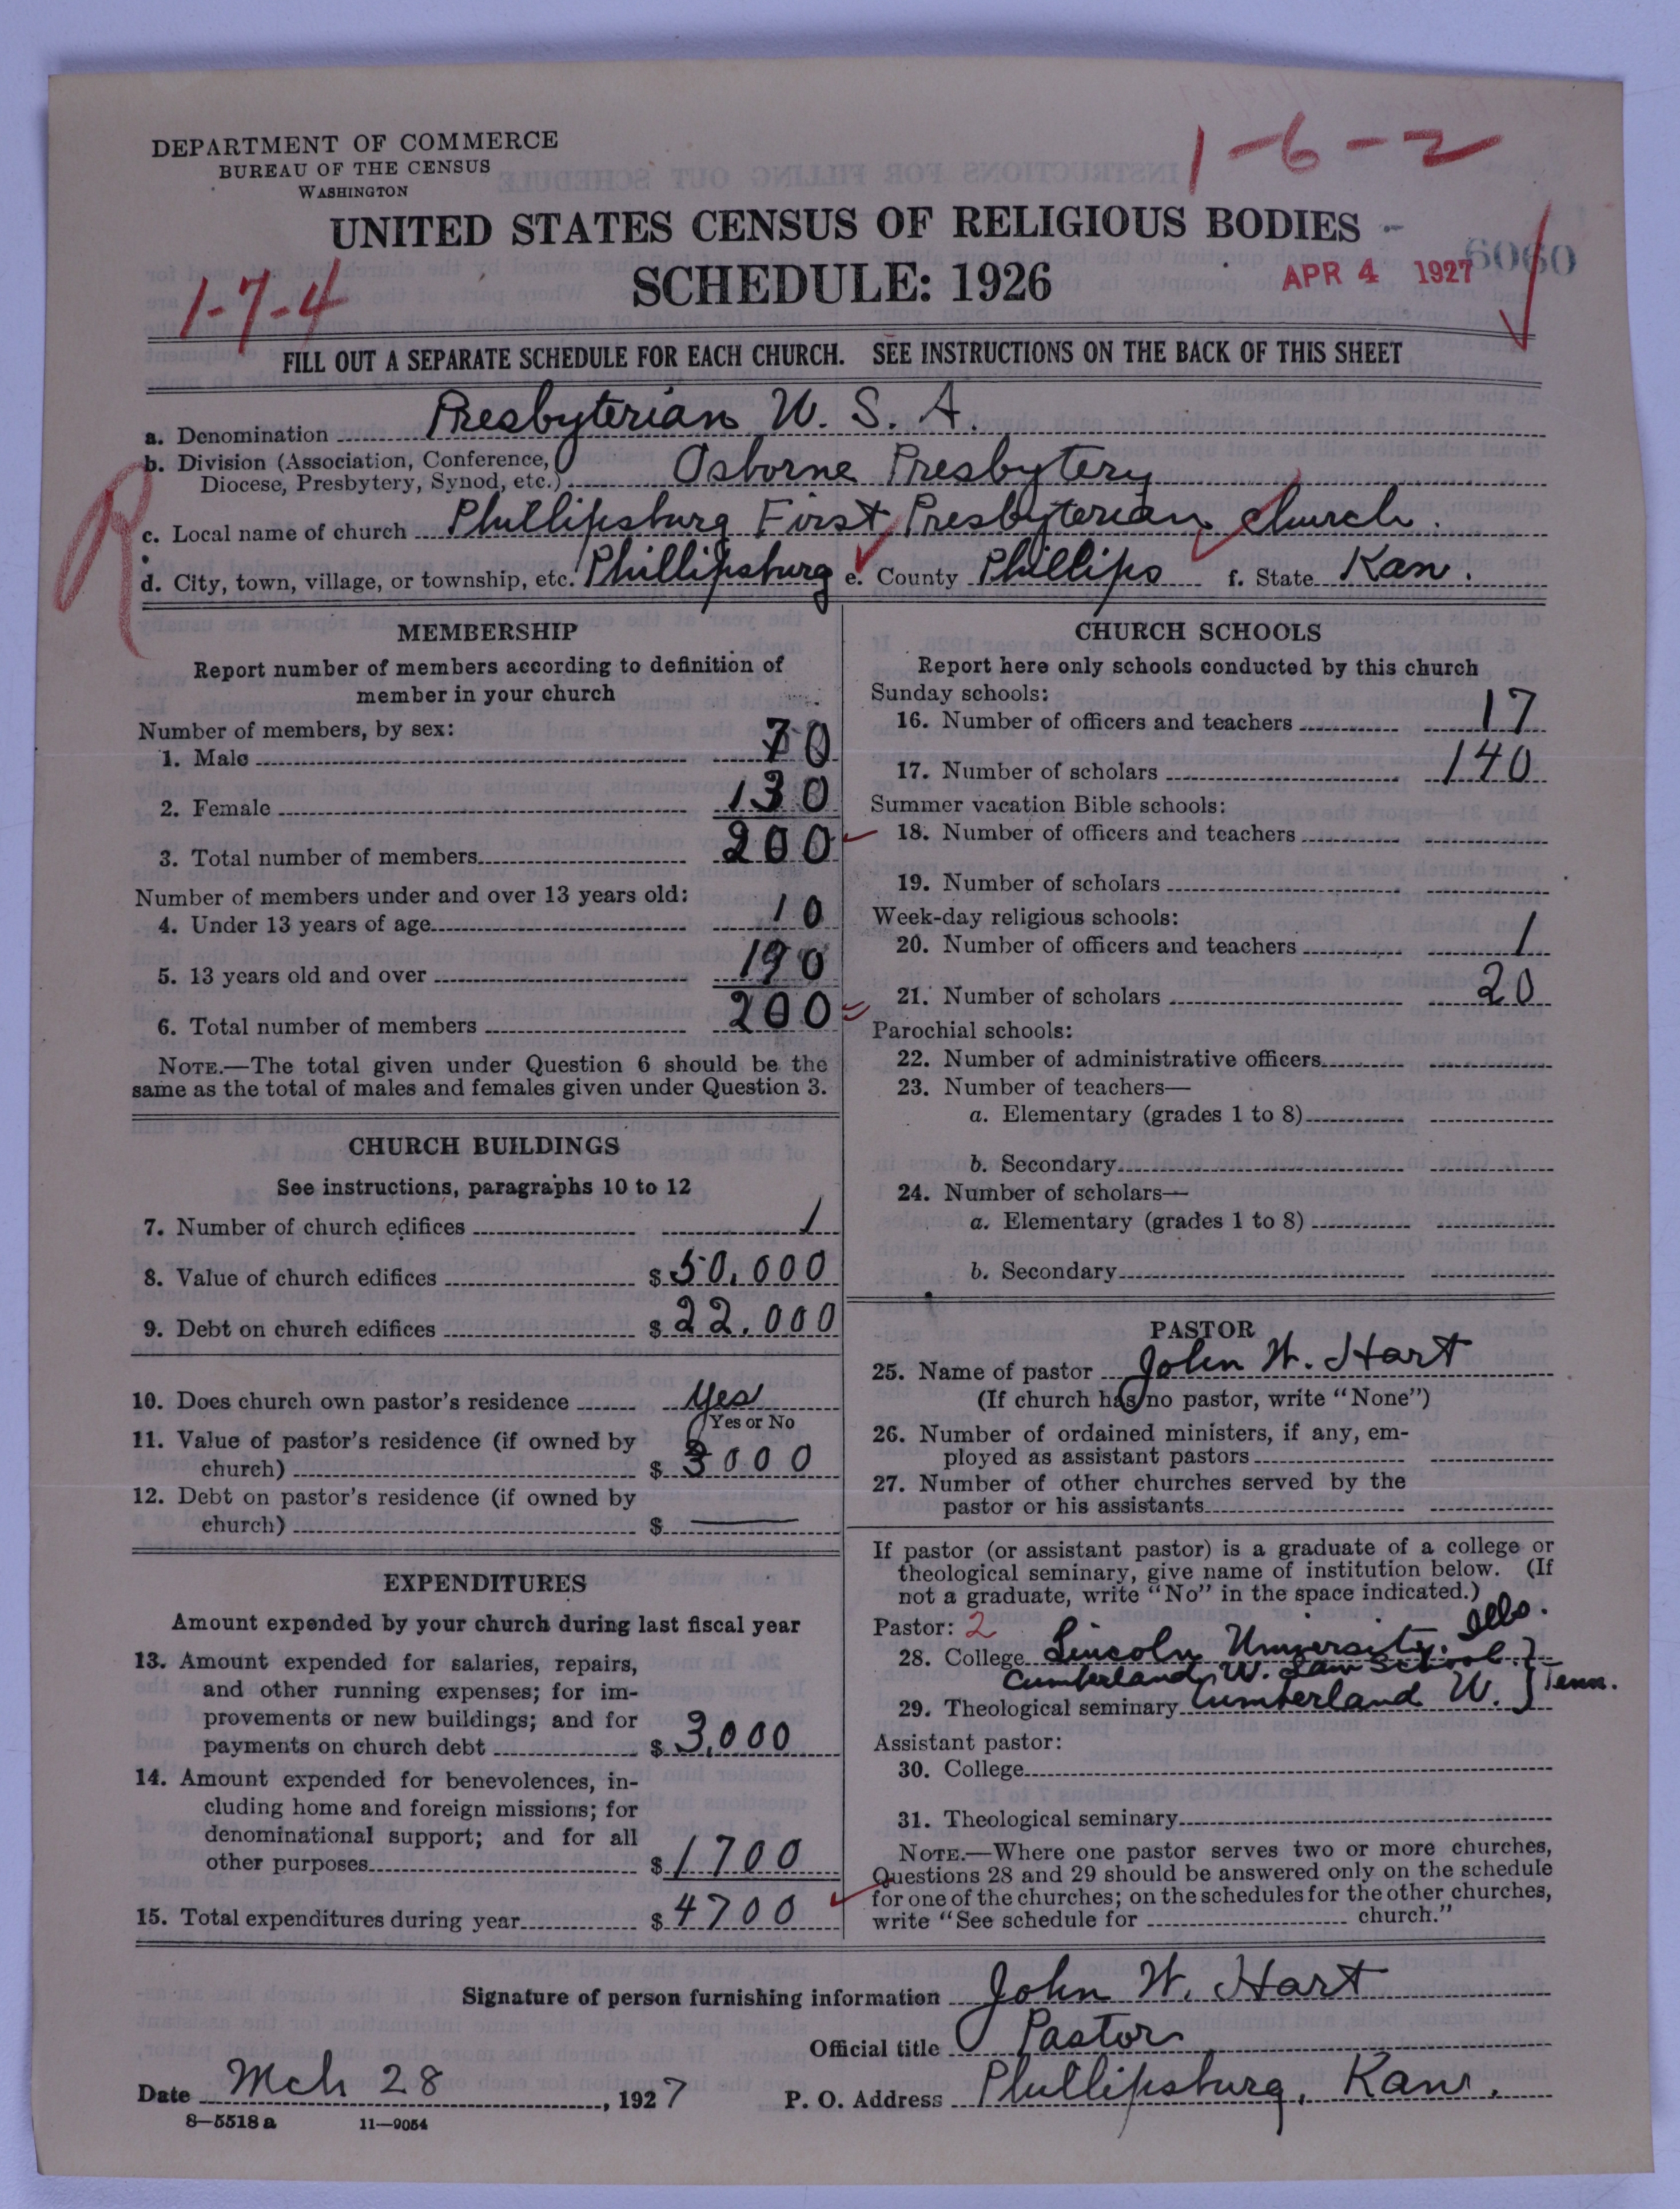 1-6-2
DEPARTMENT OF COMMERCE
BUREAU OF THE CENSUS
WASHINGTON
UNITED STATES CENSUS OF RELIGIOUS BODIES
6060
SCHEDULE: 1926
APR 4 1927
1-7-4
FILL OUT A SEPARATE SCHEDULE FOR EACH CHURCH. SEE INSTRUCTIONS ON THE BACK OF THIS SHEET
a. Denomination Presbyterian U. S. A.
b. Division (Association, Conference,
Diocese, Presbytery, Synod, etc.) Osborne Presbytery
R
c. Local name of church Phillipsburg First Presbyterian Church.
d. City, town, village, or township, etc. Phillipsburg e. County Phillips f. State Kan.
MEMBERSHIP
Report number of members according to definition of
member in your church
Number of members, by sex:
1. Male 70
2. Female 130
3. Total number of members 200
Number of members under and over 13 years old:
4. Under 13 years of age 10
5. 13 years old and over 190
6. Total number of members 200
NOTE.—The total given under Question 6 should be the
same as the total of males and females given under Question 3.
CHURCH BUILDINGS
See instructions, paragraphs 10 to 12
7. Number of church edifices 1
8. Value of church edifices $ 50,000
9. Debt on church edifices $ 22,000
10. Does church own pastor's residence Yes
Yes or No
11. Value of pastor's residence (if owned by
church) $ 3000
12. Debt on pastor's residence (if owned by
church) $ —
EXPENDITURES
Amount expended by your church during last fiscal year
13. Amount expended for salaries, repairs,
and other running expenses; for im-
provements or new buildings; and for
payments on church debt $ 3,000
14. Amount expended for benevolences, in-
cluding home and foreign missions; for
denominational support; and for all
other purposes $ 1700
15. Total expenditures during year $ 4700
CHURCH SCHOOLS
Report here only schools conducted by this church
Sunday schools:
16. Number of officers and teachers 17
17. Number of scholars 140
Summer vacation Bible schools:
18. Number of officers and teachers
19. Number of scholars
Week-day religious schools:
20. Number of officers and teachers 1
21. Number of scholars 20
Parochial schools:
22. Number of administrative officers
23. Number of teachers—
a. Elementary (grades 1 to 8)
b. Secondary
24. Number of scholars—
a. Elementary (grades 1 to 8)
b. Secondary
PASTOR
25. Name of pastor John W. Hart
(If church has no pastor, write "None")
26. Number of ordained ministers, if any, em-
ployed as assistant pastors
27. Number of other churches served by the
pastor or his assistants
If pastor (or assistant pastor) is a graduate of a college or
theological seminary, give name of institution below. (If
not a graduate, write "No" in the space indicated.)
Pastor: 2
28. College Lincoln University. Ills.
Cumberland U. Law School
29. Theological seminary Cumberland U. } Tenn.
Assistant pastor:
30. College
31. Theological seminary
NOTE.—Where one pastor serves two or more churches,
Questions 28 and 29 should be answered only on the schedule
for one of the churches; on the schedules for the other churches,
write "See schedule for church."
Signature of person furnishing information John W. Hart
Official title Pastor
Date Mch 28, 1927 P. O. Address Phillipsburg, Kans.
8—5518 a 11—9054